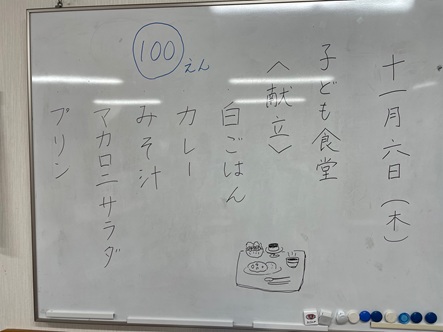 十一月六日(木)
子ども食堂
〈献立〉
白ごはん
カレー
みそ汁
マカロニサラダ
プリン
100えん